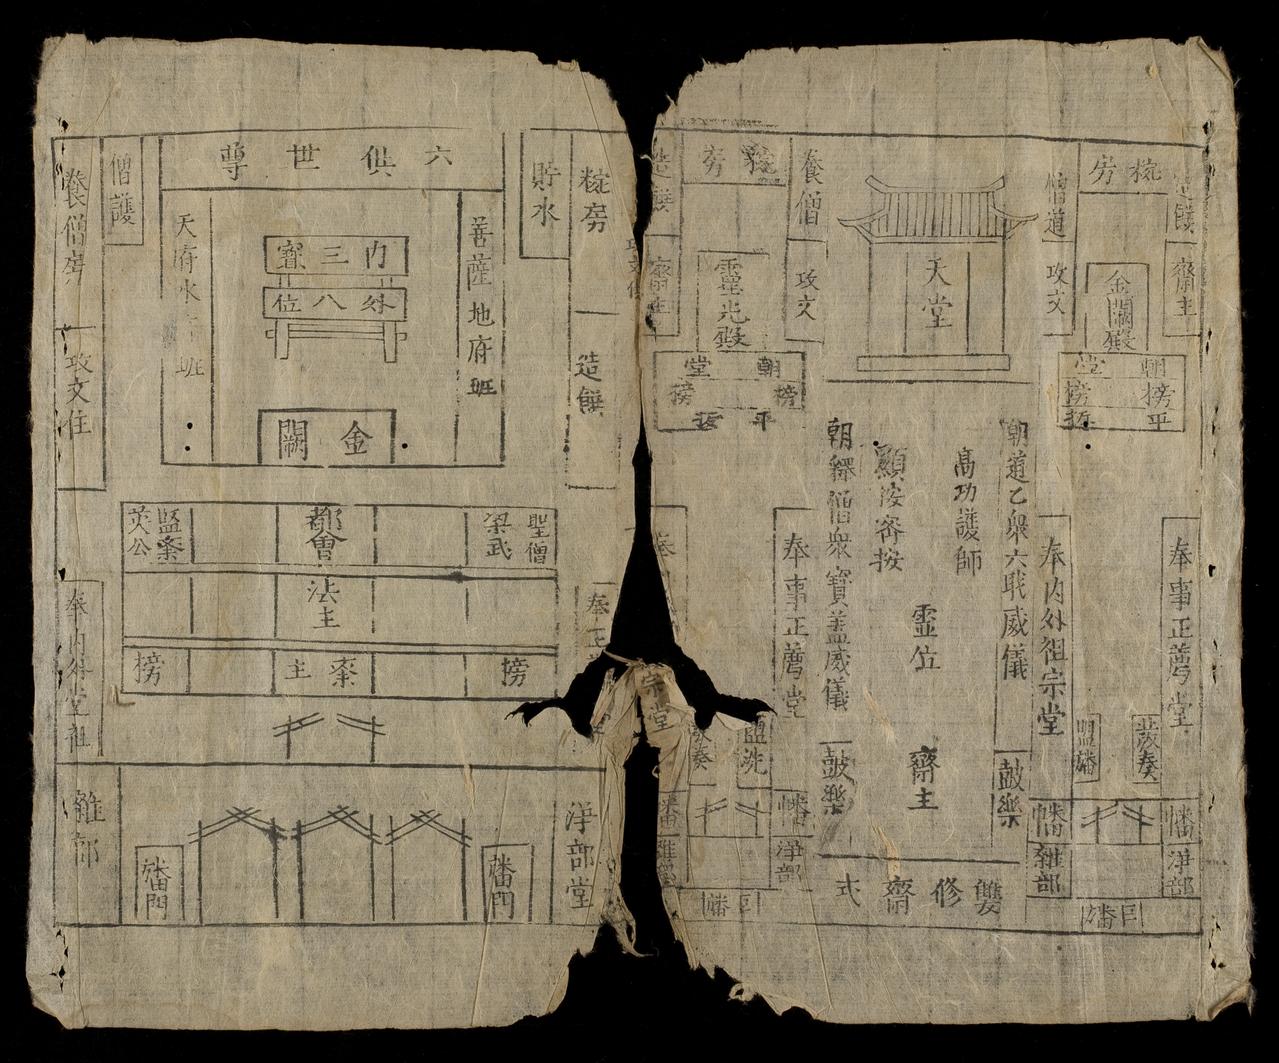 天堂
朝道乙衆六職威儀
高功護師
靈位
齋主
顯按審按
朝釋僧衆寶蓋威儀
鼓樂
鼓樂
雙修齋式
造饌
齋主
椀房
金闕殿
朝堂
榜
榜
平
哲
僧道
攻文
奉事正薦堂
奉內外祖宗堂
幡
幡
淨部
雜部
養僧
攻文
椀房
靈光殿
朝堂
榜
榜
平
哲
造饌
齋主
奉事正薦堂
宗堂
盥洗
幡
幡
淨部
雜部
椀房
造饌
貯水
六供世尊
菩薩地府班
內三寶
外八位
金闕
天府水
班
僧護
養僧房
攻文住
聖僧
梁武
都會
監齋
英公
法主
榜
齋主
榜
奉正
奉內外堂祖
淨部堂
旛門
旛門
雜部